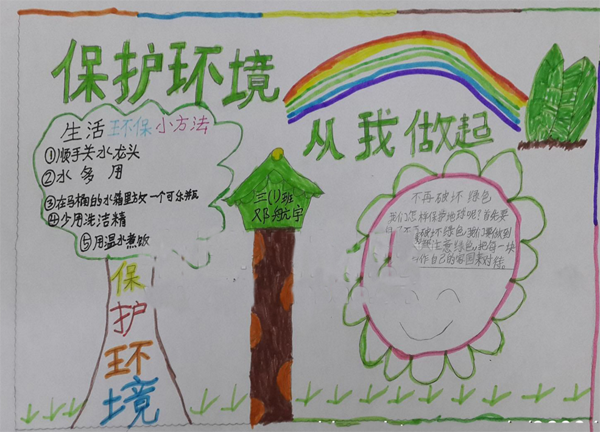 保护环境
从我做起
生活环保小方法
①顺手关水龙头
②水多用
③在马桶的水箱里放一个可乐瓶
④少用洗洁精
⑤用温水煮饭
三(1)班
邓航宇
不再破坏绿色
我们怎样保护地球呢?首先要
破坏绿色,我们要做到
注意绿色,把每一块
作自己的家园来对待。
保
护
环
境